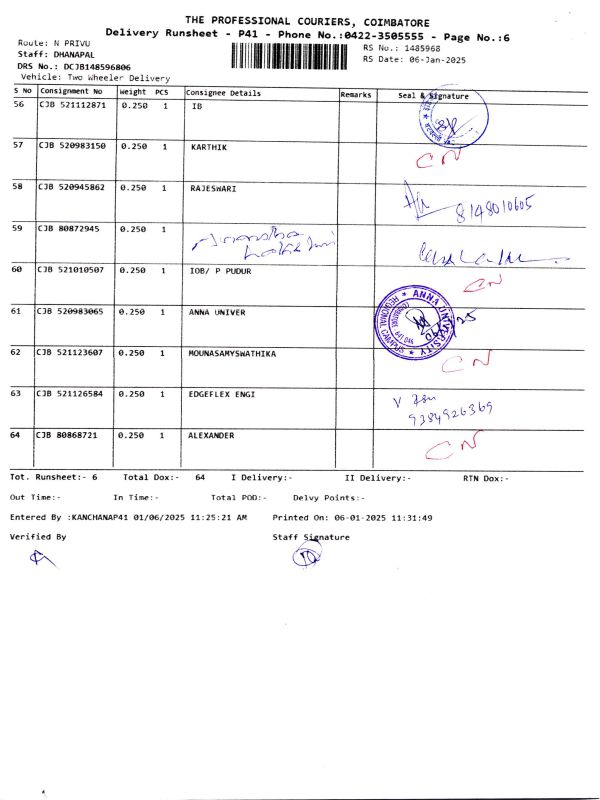 THE PROFESSIONAL COURIERS, COIMBATORE
Delivery Runsheet - P41 - Phone No.:0422-3505555 - Page No.:6
Route: N PRIVU
RS No.: 1485968
Staff: DHANAPAL
RS Date: 06-Jan-2025
DRS No.: DCJB148596806
Vehicle: Two Wheeler Delivery
S No Consignment No Weight PCS Consignee Details Remarks Seal & Signature
56 CJB 521112871 0.250 1 IB
57 CJB 520983150 0.250 1 KARTHIK CN
58 CJB 520945862 0.250 1 RAJESWARI 8148010605
59 CJB 80872945 0.250 1
60 CJB 521010507 0.250 1 IOB/ P PUDUR CN
61 CJB 520983065 0.250 1 ANNA UNIVER ANNA UNIVERSITY REGIONAL CAMPUS
62 CJB 521123607 0.250 1 MOUNASAMYSWATHIKA CN
63 CJB 521126584 0.250 1 EDGEFLEX ENGI 9384926369
64 CJB 80868721 0.250 1 ALEXANDER CN
Tot. Runsheet:- 6 Total Dox:- 64 I Delivery:- II Delivery:- RTN Dox:-
Out Time:- In Time:- Total POD:- Delvy Points:-
Entered By :KANCHANAP41 01/06/2025 11:25:21 AM Printed On: 06-01-2025 11:31:49
Verified By Staff Signature